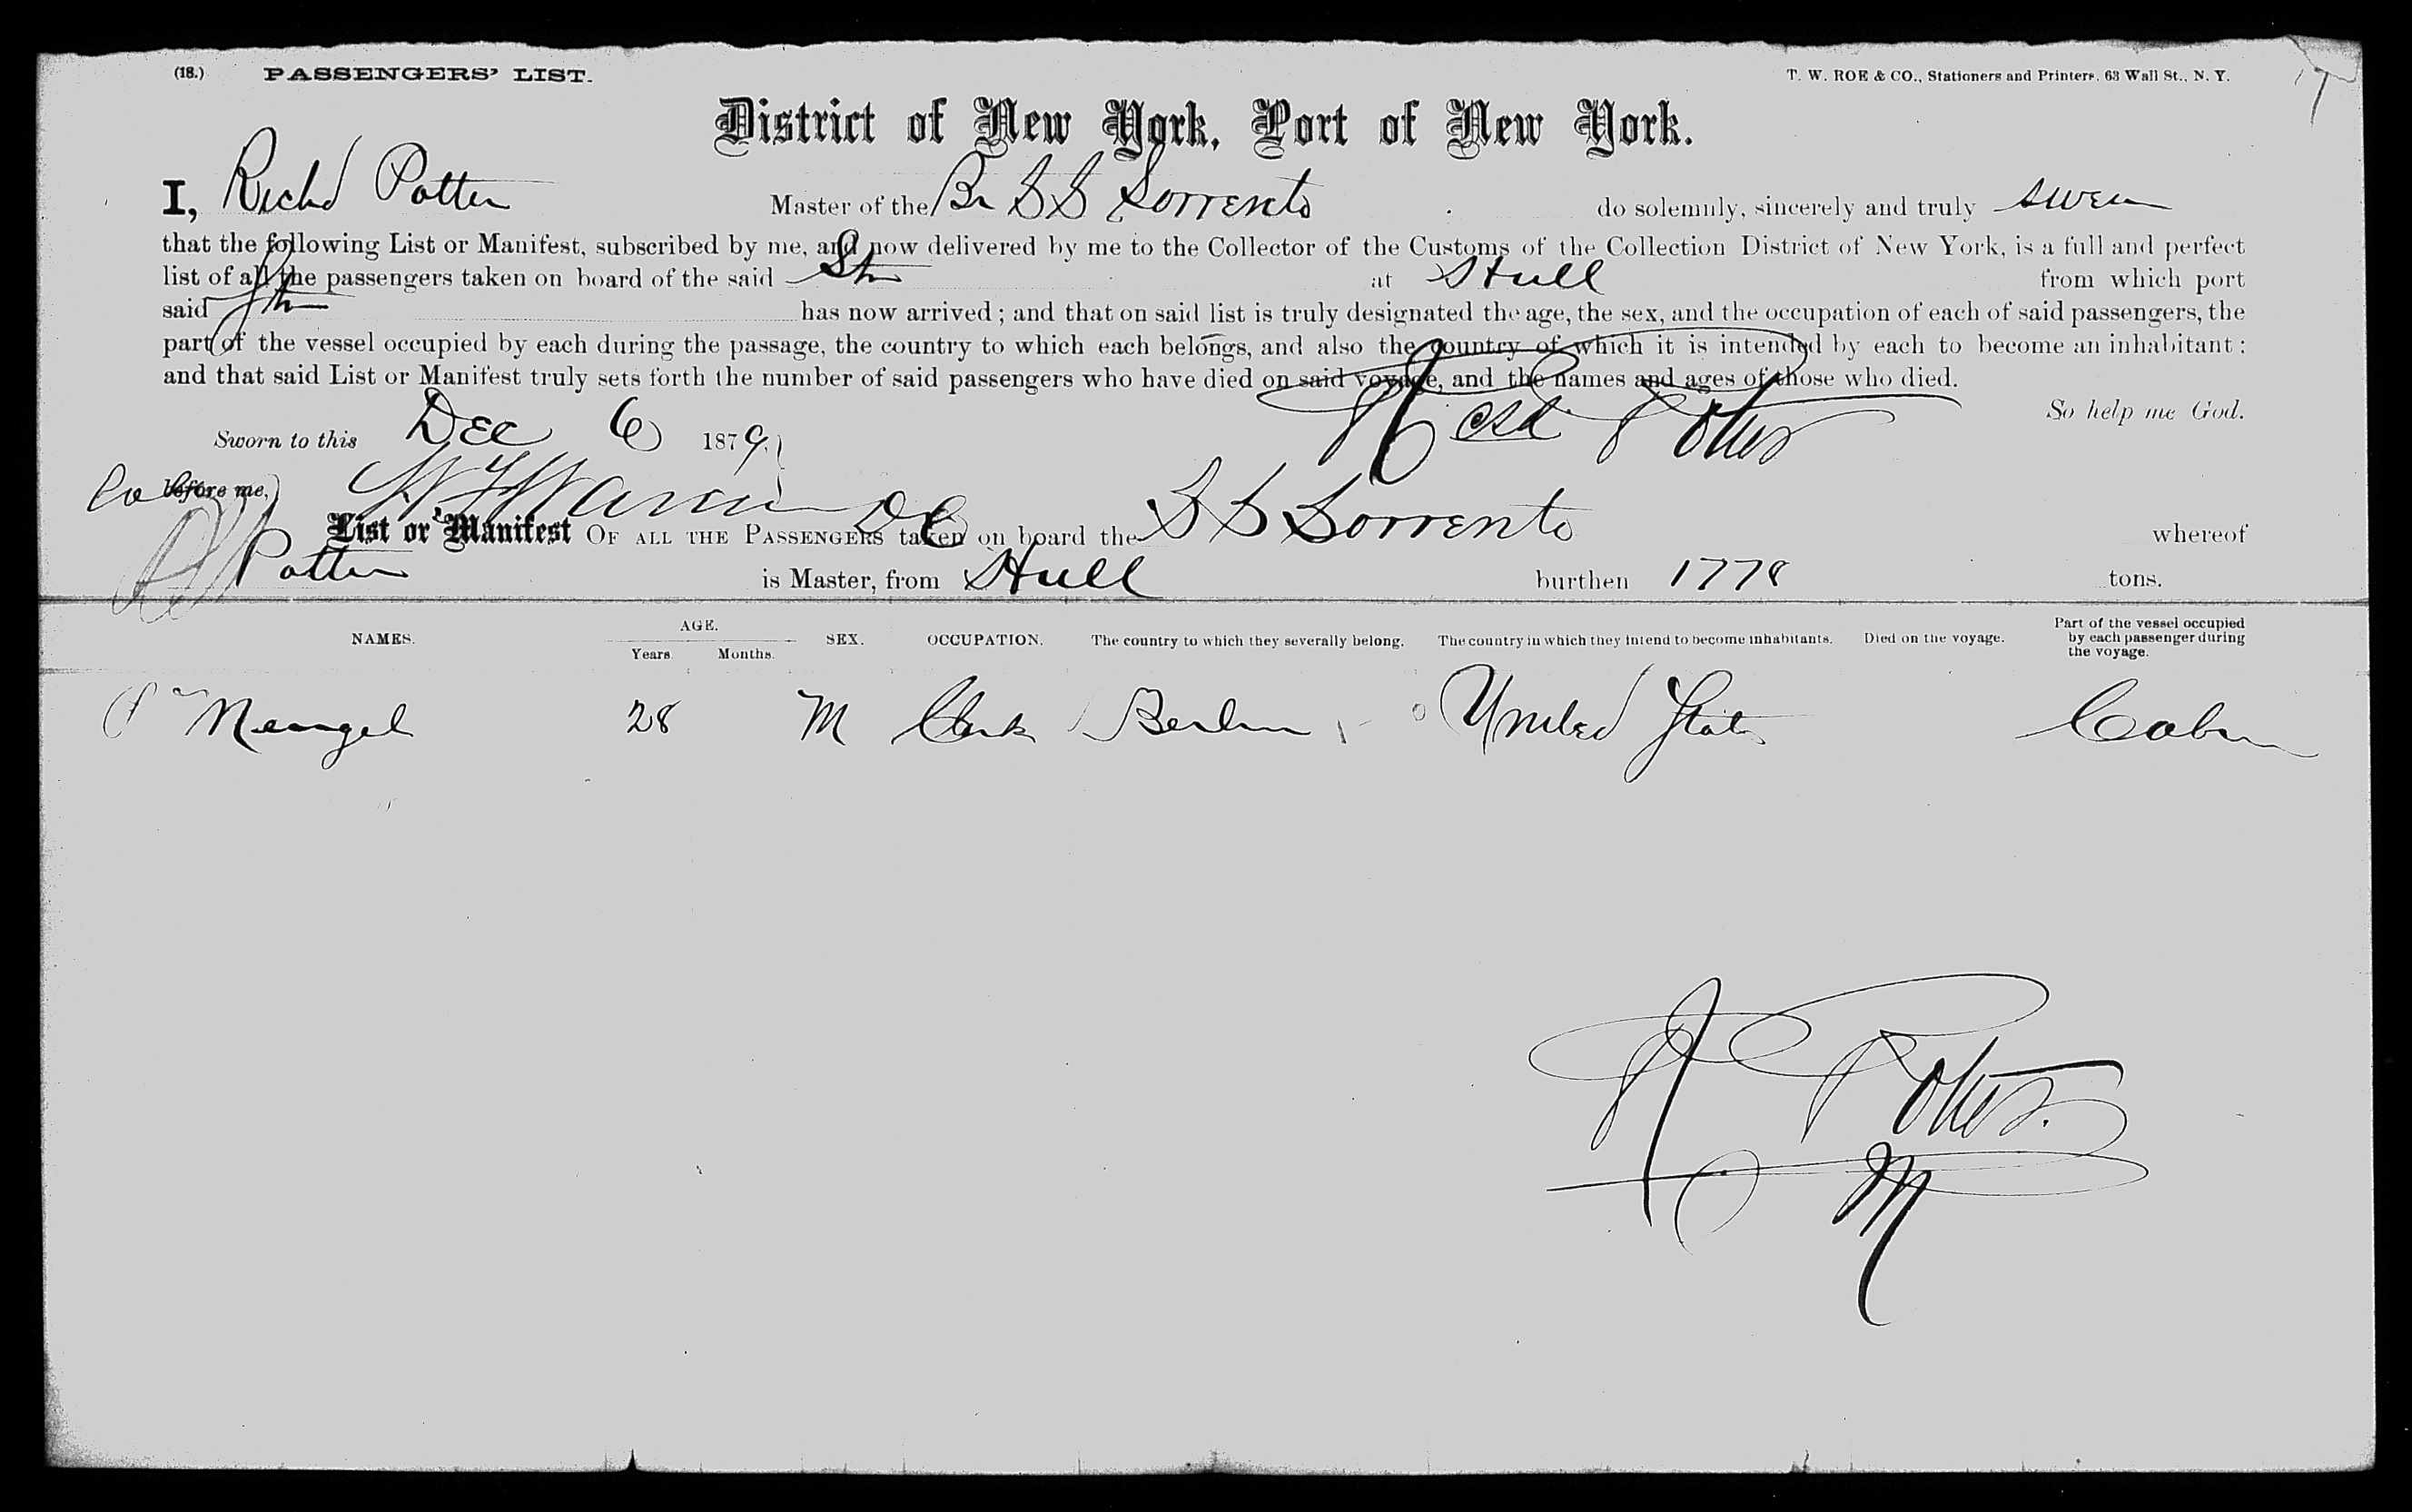 (18.) PASSENGERS' LIST. T. W. ROE & CO., Stationers and Printers, 63 Wall St., N. Y.
District of New York, Port of New York.
I, Richd Potter Master of the Br S S Sorrento do solemnly, sincerely and truly swear
that the following List or Manifest, subscribed by me, and now delivered by me to the Collector of the Customs of the Collection District of New York, is a full and perfect
list of all the passengers taken on board of the said Str at Hull from which port
said Str has now arrived; and that on said list is truly designated the age, the sex, and the occupation of each of said passengers, the
part of the vessel occupied by each during the passage, the country to which each belongs, and also the country of which it is intended by each to become an inhabitant:
and that said List or Manifest truly sets forth the number of said passengers who have died on said voyage, and the names and ages of those who died.
So help me God.
Sworn to this Dec 6 1879 Richd Potter
before me,
List or Manifest OF ALL THE PASSENGERS taken on board the S S Sorrento whereof
Potter is Master, from Hull burthen 1778 tons.
NAMES. AGE. Years. Months. SEX. OCCUPATION. The country to which they severally belong. The country in which they intend to become inhabitants. Died on the voyage. Part of the vessel occupied by each passenger during the voyage.
28 M Clerk Berlin United States Cabin
R Potter.